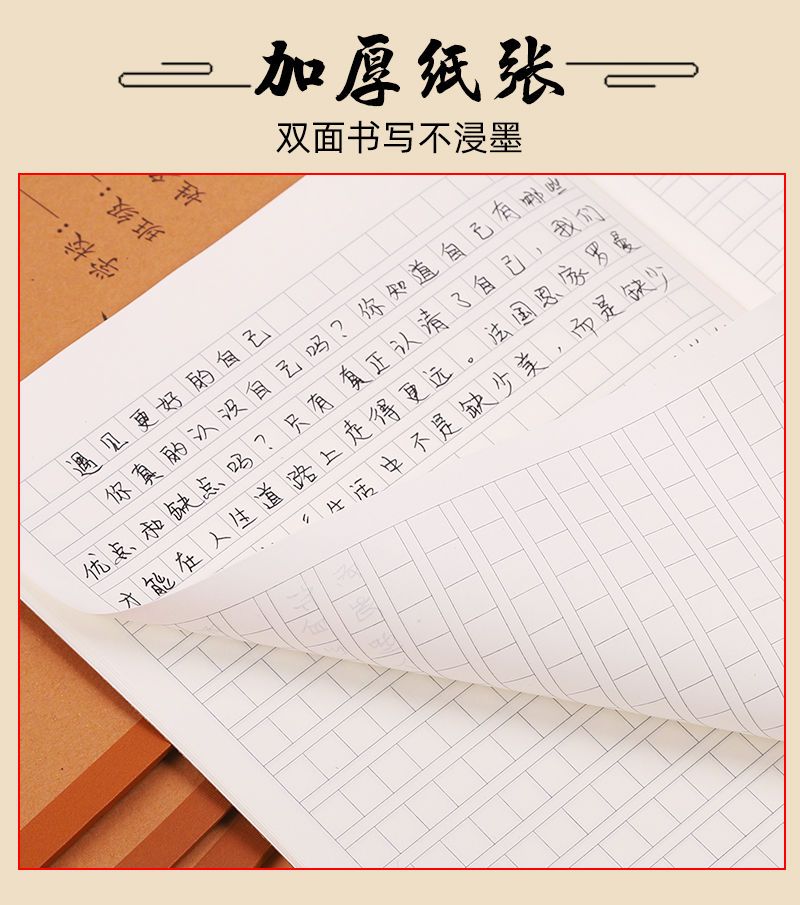 加厚纸张
双面书写不浸墨
学校:
班级:
姓名
遇见更好的自己
你真的认识自己吗?你知道自己有哪些
优点和缺点吗?只有真正认清了自己,我们
才能在人生道路上走得更远。法国思家罗曼
生活中不是缺少美,而是缺少